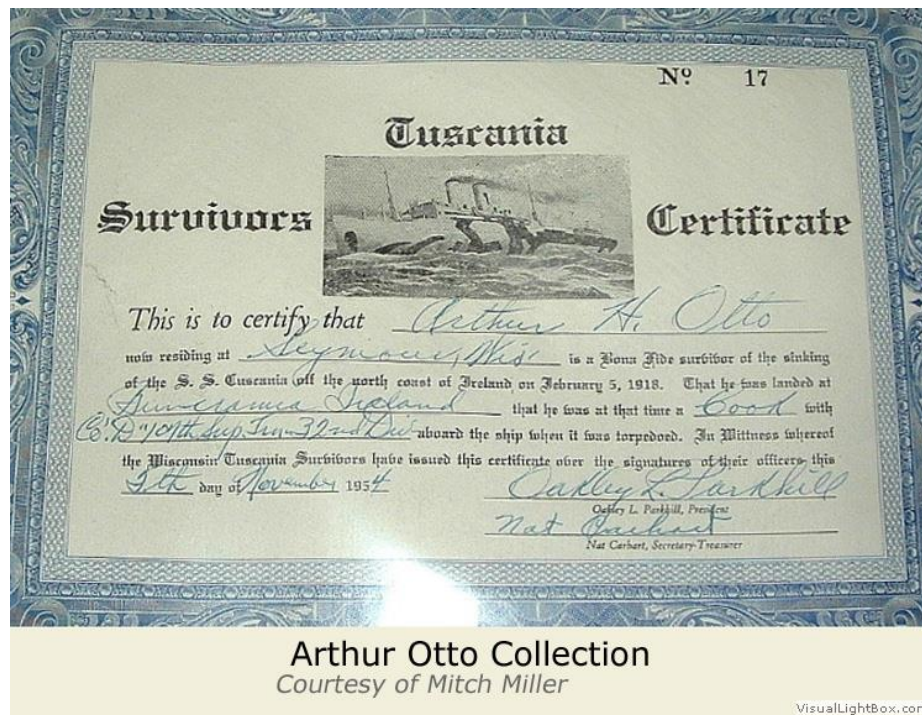 Nº 17
Tuscania
Survivors Certificate
This is to certify that Arthur H. Otto
now residing at Seymour, Wis. is a Bona Fide survivor of the sinking
of the S. S. Tuscania off the north coast of Ireland on February 5, 1918. That he was landed at
Ireland that he was at that time a Cook with
Co. "D" 107th Sup. Trn. 32nd Div aboard the ship when it was torpedoed. In Wittness whereof
the Wisconsin Tuscania Survivors have issued this certificate over the signatures of their officers this
day of November 1954 Oakley L. Parkhill
Oakley L. Parkhill, President
Nat Carhart
Nat Carhart, Secretary-Treasurer
Arthur Otto Collection
Courtesy of Mitch Miller
VisualLightBox.com